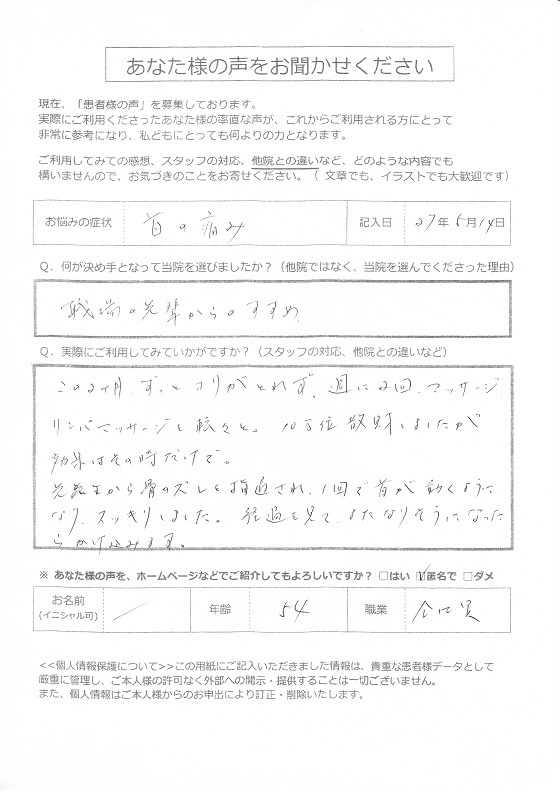 あなた様の声をお聞かせください
現在、「患者様の声」を募集しております。
実際にご利用くださったあなた様の率直な声が、これからご利用される方にとって
非常に参考になり、私どもにとっても何よりの力となります。
ご利用してみての感想、スタッフの対応、他院との違いなど、どのような内容でも
構いませんので、お気づきのことをお寄せください。（ 文章でも、イラストでも大歓迎です）
お悩みの症状 首の痛み 記入日 27年 5月 14日
Q．何が決め手となって当院を選びましたか？（他院ではなく、当院を選んでくださった理由）
職場の先輩からのすすめ
Q．実際にご利用してみていかがですか？（スタッフの対応、他院との違いなど）
この2ヶ月、ずっとコリがとれず、週に2回、マッサージ、
リンパマッサージと転々と。10万位散財しましたが
効果はその時だけで。
先生から骨のズレと指適され、1回で首が動くように
なり、スッキリしました。経過を見て、またなりそうになった
らかけ込みます。
※ あなた様の声を、ホームページなどでご紹介してもよろしいですか？ □はい ☑匿名で □ダメ
お名前 年齢 54 職業 会社員
(イニシャル可)
<<個人情報保護について>>この用紙にご記入いただきました情報は、貴重な患者様データとして
厳重に管理し、ご本人様の許可なく外部への開示・提供することは一切ございません。
また、個人情報はご本人様からのお申出により訂正・削除いたします。